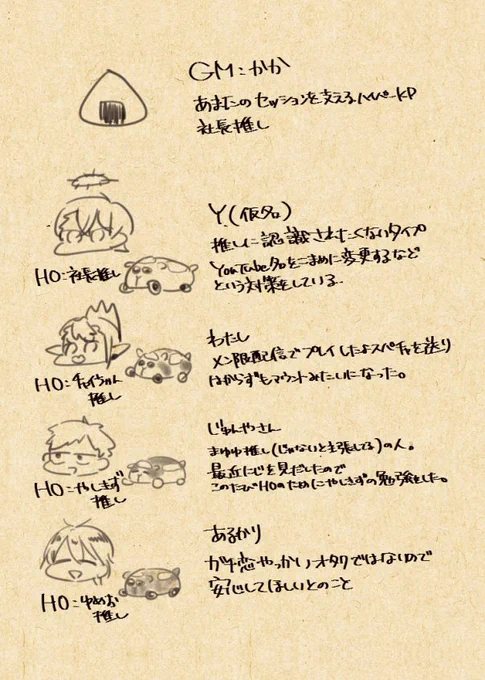 GM:かか
あまたのセッションを支えるハイパーKP
社長推し
Y(仮名)
推しに認識されたくないタイプ
YouTube名をこまめに変更するなど
という対策をしている。
HO:社長推し
わたし
メン限配信でプレイしたよスペチャを送り
はからずもマウントみたいになった。
HO:チャイカちゃん
推し
じゅんやさん
まゆゆ推し(じゃないと主張してる)の人。
最近にじを見だしたので
このたびHOのためにやしきずの勉強をした。
HO:やしきず
推し
あるかり
ガチ恋やっかいオタクではないので
安心してほしいとのこと
HO:ゆめお
推し